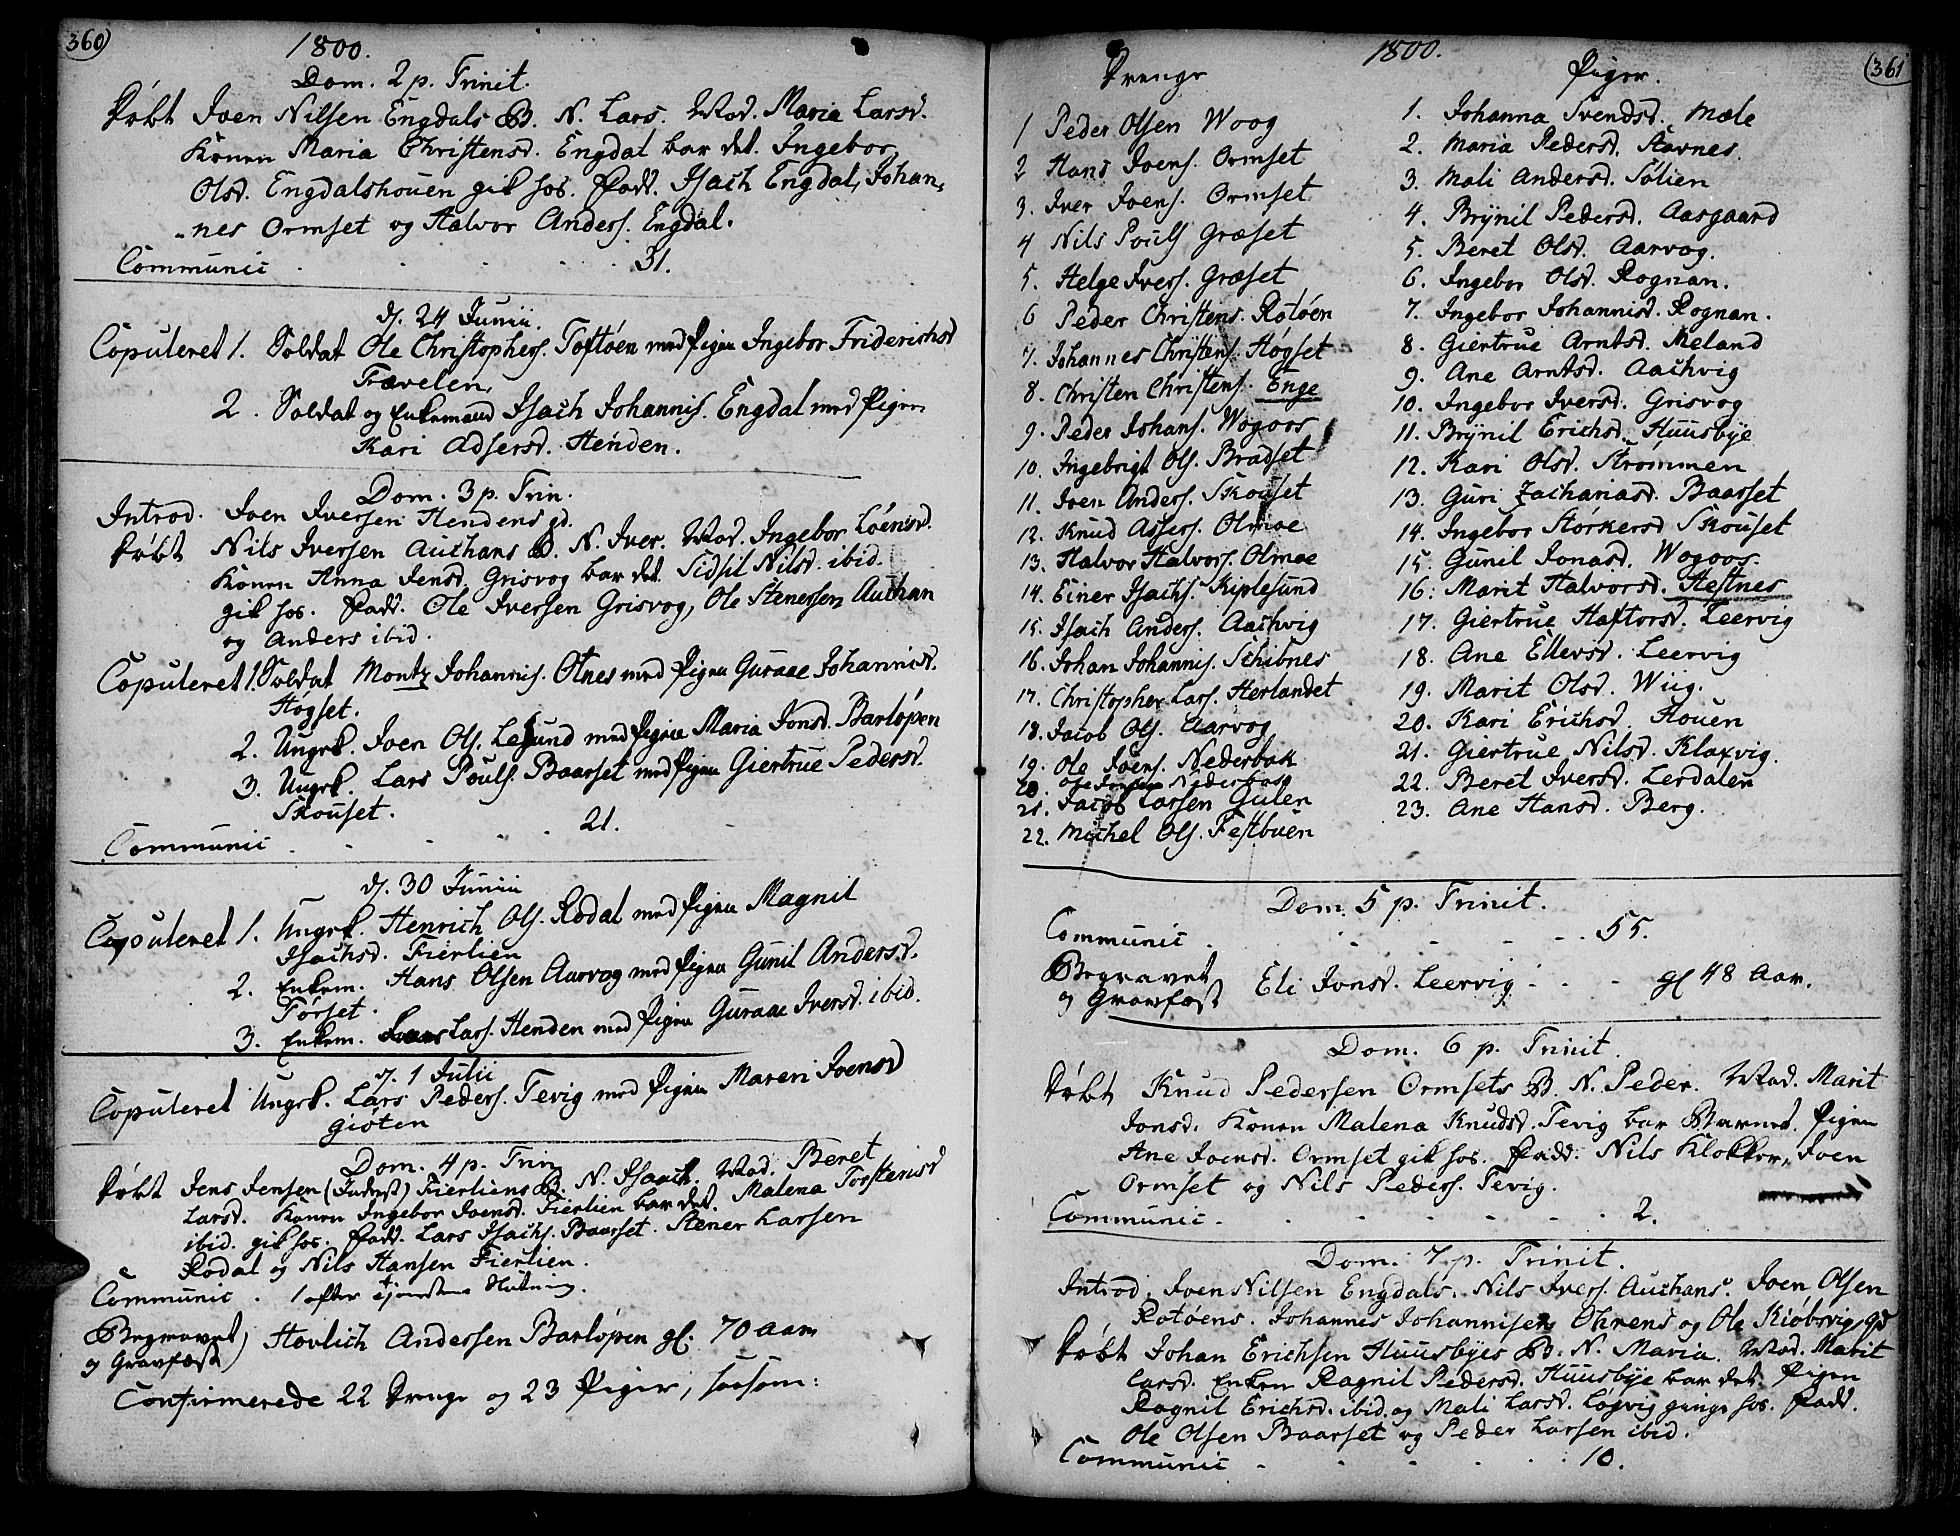 360)
1800.
Dom. 2 p. Trinit.
Døbt Joen Nilsen Engdals B. N. Lars. Mod. Maria Larsd.
Konen Maria Christensd. Engdal bar det. Ingebor
Olsd. Engdalshouen gik hos. Fadd. Isach Engdal, Johan,
„nes Ormset og Halvor Anders. Engdal.
Communic . . . . . 31.
d. 24 Junii.
Copuleret 1. Soldat Ole Christophers. Toftøen med Pigen Ingebor Friderichsd
Trævelen.
2. Soldat og Enkemand Isach Johannis. Engdal med Pigen
Kari Adsersd. Henden.
Dom. 3 p. Trin.
Introd. Joen Iversen Hendens gd.
Døbt Nils Iversen Auchans B. N. Iver. Mod. Ingebor Loensd.
Konen Anna Jensd. Grisvog bar det. Sidsil Nilsd. ibid.
gik hos. Fadd. Ole Iversen Grisvog, Ole Stenersen Auchan
og Anders ibid.
Copuleret 1. Soldat Montz Johannis. Otnes med Pigen Guraae Johannisd.
Høgset.
2. Ungk. Joen Ols. Lesund med Pigen Maria Jonsd. Barløpen
3. Ungk. Lars Pouls. Baarset med Pigen Giertrue Pedersd.
Skouset.
Communic . . . . 21.
d. 30 Junii
Copuleret 1. Ungk. Henrich Ols. Rodal med Pigen Magnil
Isachsd. Fierlien
2. Enkem. Hans Olsen Aarvog med Pigen Gunil Andersd.
Førset.
3. Enkem. Lars. Henden med Pigen Guraae Iversd. ibid.
d. 1 Julii
Copuleret Ungk. Lars Peders. Tevig med Pigen Maren Joensd
Giøten
Dom. 4 p. Trin
Døbt Jens Jensen Fierliens B. N. Isaach. Mod. Beret
Larsd. Konen Ingebor Joensd. Fierlien bar det. Malena Torstensd
ibid. gik hos. Fadd. Lars Isachs. Baarset. Stener Larsen
Rodal og Nils Hansen Fierlien.
Communic . 1 efter tjenestens Slutning.
Begravet
og Gravfæst) Hovlich Andersen Barløpen gl. 70 aar
Confirmerede 22 Drenge og 23 Piger, saasom:
1800.
(361
Drenge
1 Peder Olsen Woog
2 Hans Joens. Ormset
3. Iver Joens. Ormset
4 Nils Pouls Græset
5. Helge Ivers. Græset
6 Peder Christens. Rotøen
7. Johannes Christens. Høgset
8. Christen Christens. Enge
9. Peder Johans. Wogoos
10. Ingebrigt Ols. Bradset
11. Joen Anders. Skouset
12. Knud Assers. Olmoe
13. Halvor Halvors. Olmoe
14. Einer Isachs. Kiplesund
15. Isach Anders. Aachvig
16. Johan Johannis. Schibnes
17. Christopher Lars. Herlandet
18. Jacob Ols. Aarvog
19. Ole Joens. Nederbak
20. Ole Nederbak
21. Jacob Larsen Gulen
22. Michel Ols. Festbuen
Piger.
1. Johanna Svendsd. Mæle
2. Maria Pedersd. Stavnes.
3. Mali Andersd. Solien
4. Brÿnil Pedersd. Aasgaard
5. Beret Olsd. Aarvog.
6. Ingebor Olsd. Rognan.
7. Ingebor Johannisd. Rognan.
8. Giertrue Arntsd. Meland
9. Ane Arntsd. Aachvig
10. Ingebor Iversd. Grisvog
11. Brÿnil Erichsd. Huusbÿe
12. Kari Olsd. Strommen
13. Guri Zachariasd. Baarset
14. Ingebor Størkersd Skouset
15. Gunil Jonasd. Wogoos.
16. Marit Halvorsd. Hestnes
17. Giertrue Haftorsd. Leervig
18. Ane Ellevsd. Leervig
19. Marit Olsd. Wiig.
20. Kari Erichsd. Houen
21. Giertrue Nilsd. Klaxvig.
22. Beret Iversd. Lerdalen
23. Ane Hansd. Berg.
Dom. 5 p. Trinit.
Communic . . . . . 55.
Begravet
og Gravfæst Eli Jonsd. Leervig . . . gl 48 Aar.
Dom. 6 p. Trinit.
Døbt Knud Pedersen Ormsets B. N. Peder. Mod. Marit
Jonsd. Konen Malena Knudsd. Tevig bar Barnet. Pigen
Ane Joensd. Ormset gik hos. Fadd. Nils Klokker, Joen
Ormset og Nils Peders. Tevig.
Communic . . . . . . . 2.
Dom. 7 p. Trinit.
Introd. Joen Nilsen Engdals. Nils Ivers. Auchans. Joen Olsen
Rotøens. Johannes Johannisens Ohrens og Ole Kiøbsvigs gd
Døbt Johan Erichsen Huusbÿes B. N. Maria. Mod. Marit
Larsd. Enken Ragnil Pedersd. Huusbÿe bar det. Pigen
Ragnil Erichsd. ibid. og Mali Larsd. Løgvig ginge hos. Fadd.
Ole Olsen Baarset og Peder Larsen ibid.
Communic . . . . . 10.